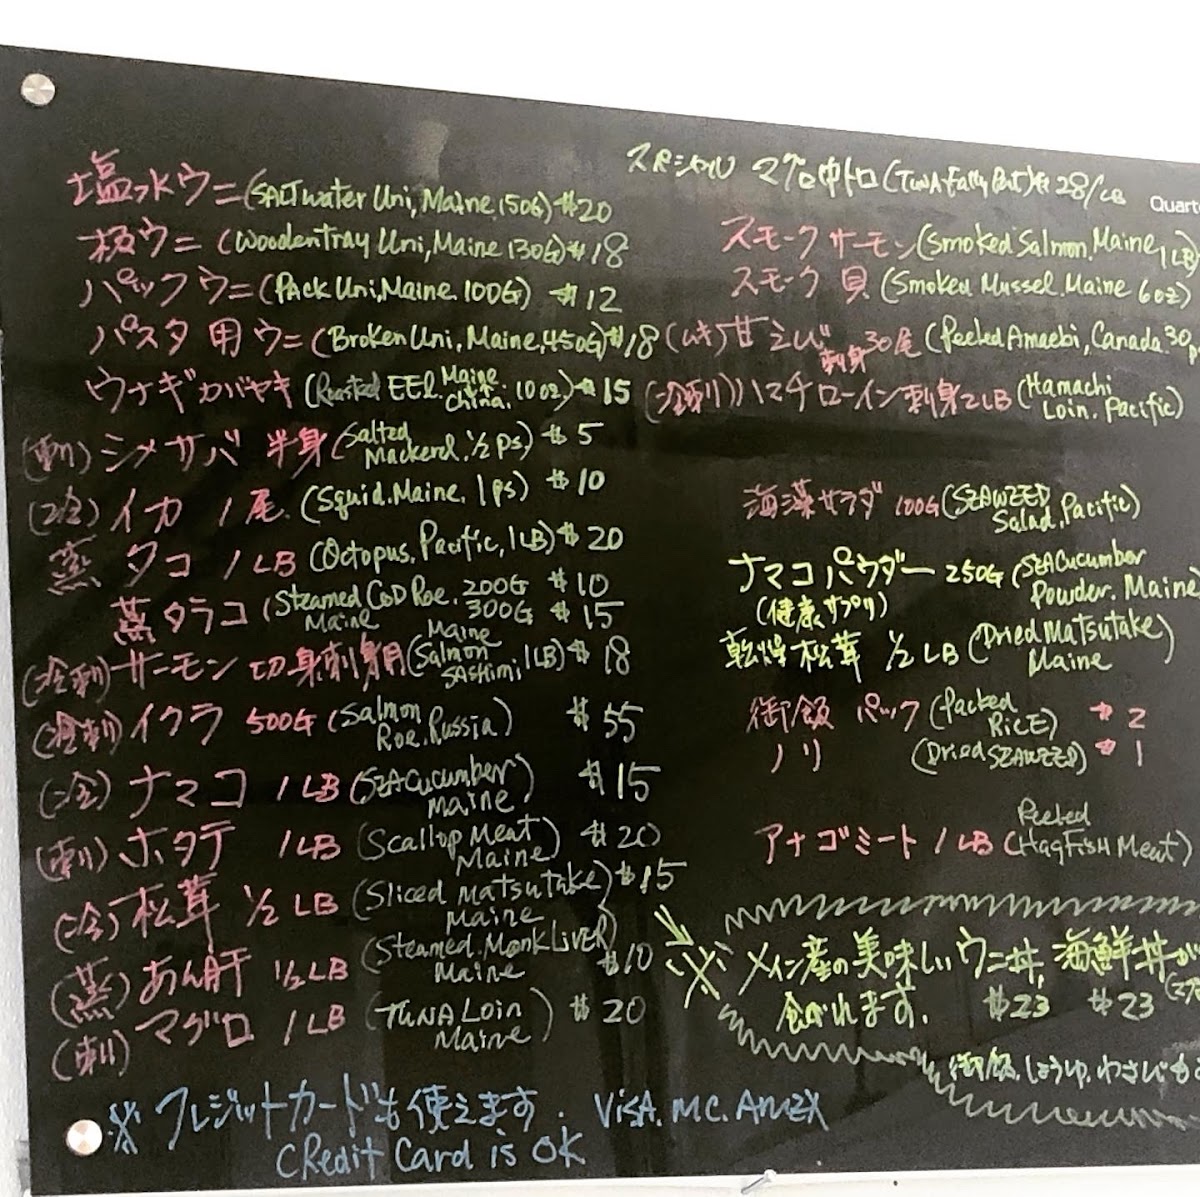 塩水ウニ (SALTwater Uni, Maine 150G) $20
板ウニ (Wooden tray Uni, Maine 130G) $18
パックウニ (PAck Uni, Maine. 100G) $12
パスタ用ウニ (Broken Uni, Maine, 450G) $18
ウナギカバヤキ (Roasted EEl. Maine. China. 10oz) $15
(刺) シメサバ 半身 (Salted Mackerel, 1/2 ps) $5
(冷) イカ 1尾. (Squid. Maine, 1ps) $10
蒸 タコ 1LB (Octopus, Pacific, 1LB) $20
蒸 タラコ (Steamed COD Roe. Maine 200G $10
300G $15
(冷刺) サーモン 切身刺身用 (Maine Salmon SAShimi, 1LB) $18
(冷刺) イクラ 500G (Salmon Roe. Russia) $55
(冷) ナマコ 1LB (SEA Cucumber Maine) $15
(刺) ホタテ 1LB (Scallop Meat Maine) $20
(冷) 松茸 1/2 LB (Sliced Matsutake Maine) $15
(蒸) あん肝 1/2 LB (Steamed. Monk LiVER Maine) $10
(刺) マグロ 1LB (TUNA Loin Maine) $20
※ クレジットカードも使えます. VisA. M.C. AMEX
CRedit Card is OK
スペシャル マグロ中トロ (TUNA Fatty Part) $28/LB
Quart
スモークサーモン (Smoked Salmon. Maine, 1LB)
スモーク 貝 (Smoked Mussel. Maine 6oz)
(ムキ) 甘えび 刺身 30尾 (Peeled Amaebi, Canada. 30p
(冷刺) ハマチ ローイン 刺身 2LB (Hamachi Loin. Pacific)
海藻サラダ 100G (SEAWEED Salad, Pacific)
ナマコ パウダー 250G (SEA Cucumber Powder. Maine
(健康サプリ)
乾燥松茸 1/2 LB (Dried Matsutake Maine)
御飯 パック (Packed RICE) $2
ノリ (Dried SEAWEED) $1
アナゴミート 1LB (Peeled HagFisH Meat)
メイン産の美味しいウニ丼, 海鮮丼が
食べれます. $23 $23
御飯. しょうゆ. わさびも